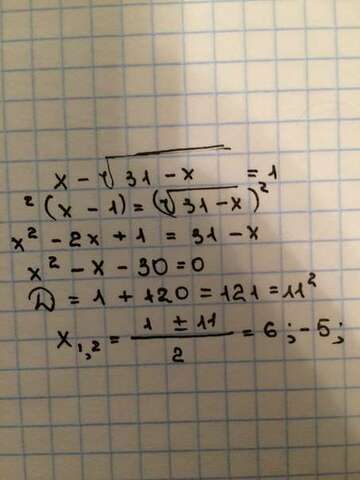 x - √31 - x = 1
²(x - 1) = (√31 - x)²
x² - 2x + 1 = 31 - x
x² - x - 30 = 0
D = 1 + 120 = 121 = 11²
x₁,₂ = (1 ± 11)/2 = 6 ; -5 ;